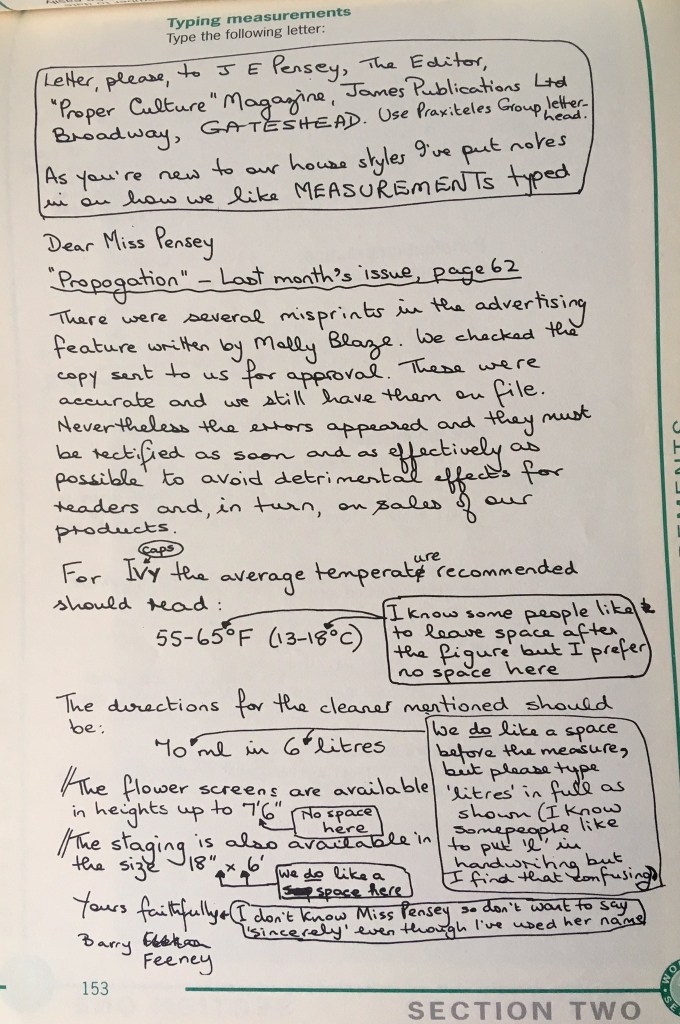 Typing measurements
Type the following letter:
Letter, please, to J E Pensey, The Editor,
"Proper Culture" Magazine, James Publications Ltd
Broadway, GATESHEAD. Use Praxiteles Group letter-
head.
As you're new to our house styles I've put notes
in on how we like MEASUREMENTS typed
Dear Miss Pensey
"Propogation" – Last month's issue, page 62
There were several misprints in the advertising
feature written by Molly Blaze. We checked the
copy sent to us for approval. These were
accurate and we still have them on file.
Nevertheless the errors appeared and they must
be rectified as soon and as effectively as
possible to avoid detrimental effects for
readers and, in turn, on sales of our
products.
caps
For Ivy the average temperature recommended
should read:
55-65°F (13-18°C)
I know some people like
to leave space after
the figure but I prefer
no space here
The directions for the cleaner mentioned should
be:
70 ml in 6 litres
We do like a space
before the measure,
but please type
'litres' in full as
shown (I know
some people like
to put 'l' in
handwriting but
I find that confusing)
//The flower screens are available
in heights up to 7'6"
No space
here
//The staging is also available in
the size 18" x 6'
We do like a
space here
Yours faithfully
I don't know Miss Pensey so don't want to say
'sincerely' even though I've used her name
Barry
Feeney
153
SECTION TWO